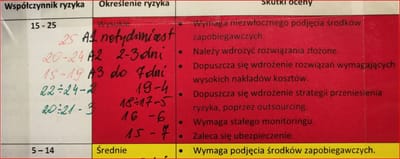 Współczynnik ryzyka
Określenie ryzyka
Skutki oceny
15 - 25
Wysokie
• Wymaga niezwłocznego podjęcia środków zapobiegawczych.
• Należy wdrożyć rozwiązania złożone.
• Dopuszcza się wdrożenie rozwiązań wymagających wysokich nakładów kosztów.
• Dopuszcza się wdrożenie strategii przeniesienia ryzyka, poprzez outsourcing.
• Wymaga stałego monitoringu.
• Zaleca się ubezpieczenie.
25 A1 natychmiast
20-24 A2 2-3 dni
15-19 A3 do 7 dni
22÷24-2
19-4
20÷21-3
18÷17-5
16-6
15-7
5 – 14
Średnie
• Wymaga podjęcia środków zapobiegawczych.